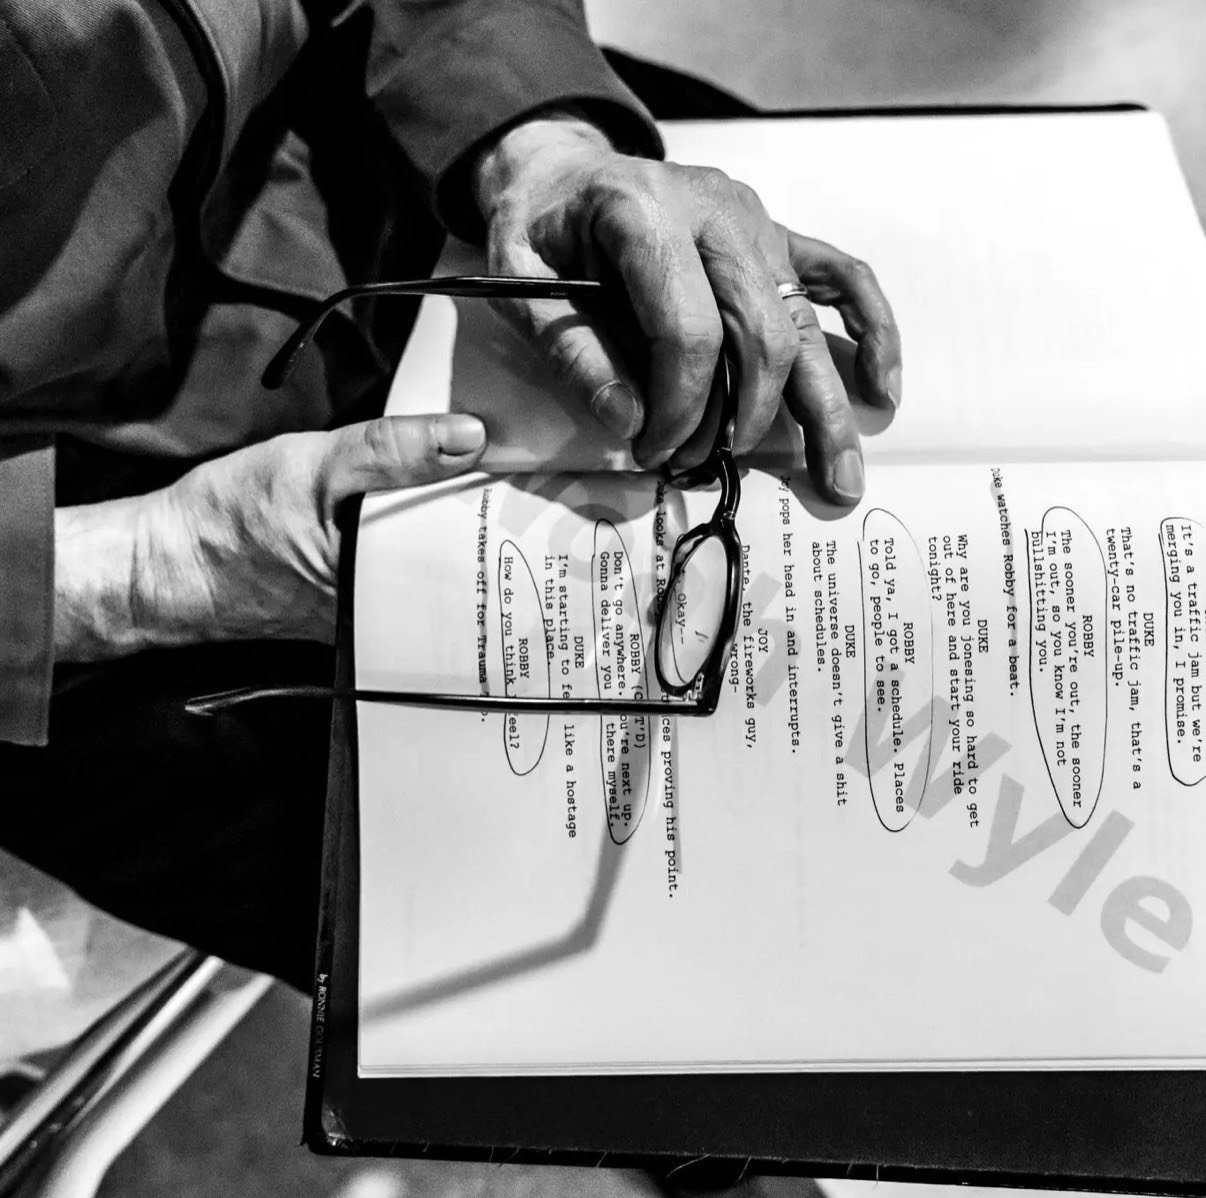 It's a traffic jam but we're
merging you in, I promise.
DUKE
That's no traffic jam, that's a
twenty-car pile-up.
ROBBY
The sooner you're out, the sooner
I'm out, so you know I'm not
bullshitting you.
Duke watches Robby for a beat.
DUKE
Why are you jonesing so hard to get
out of here and start your ride
tonight?
ROBBY
Told ya, I got a schedule. Places
to go, people to see.
DUKE
The universe doesn't give a shit
about schedules.
Joy pops her head in and interrupts.
JOY
Dante, the fireworks guy,
wrong-
okay--
Duke looks at proving his point.
ROBBY
Don't go anywhere. You're next up.
Gonna deliver you there myself.
DUKE
I'm starting to feel like a hostage
in this place.
ROBBY
How do you think I feel?
Robby takes off for Trauma
Noah Wyle
by RONNIE GOLSMAN